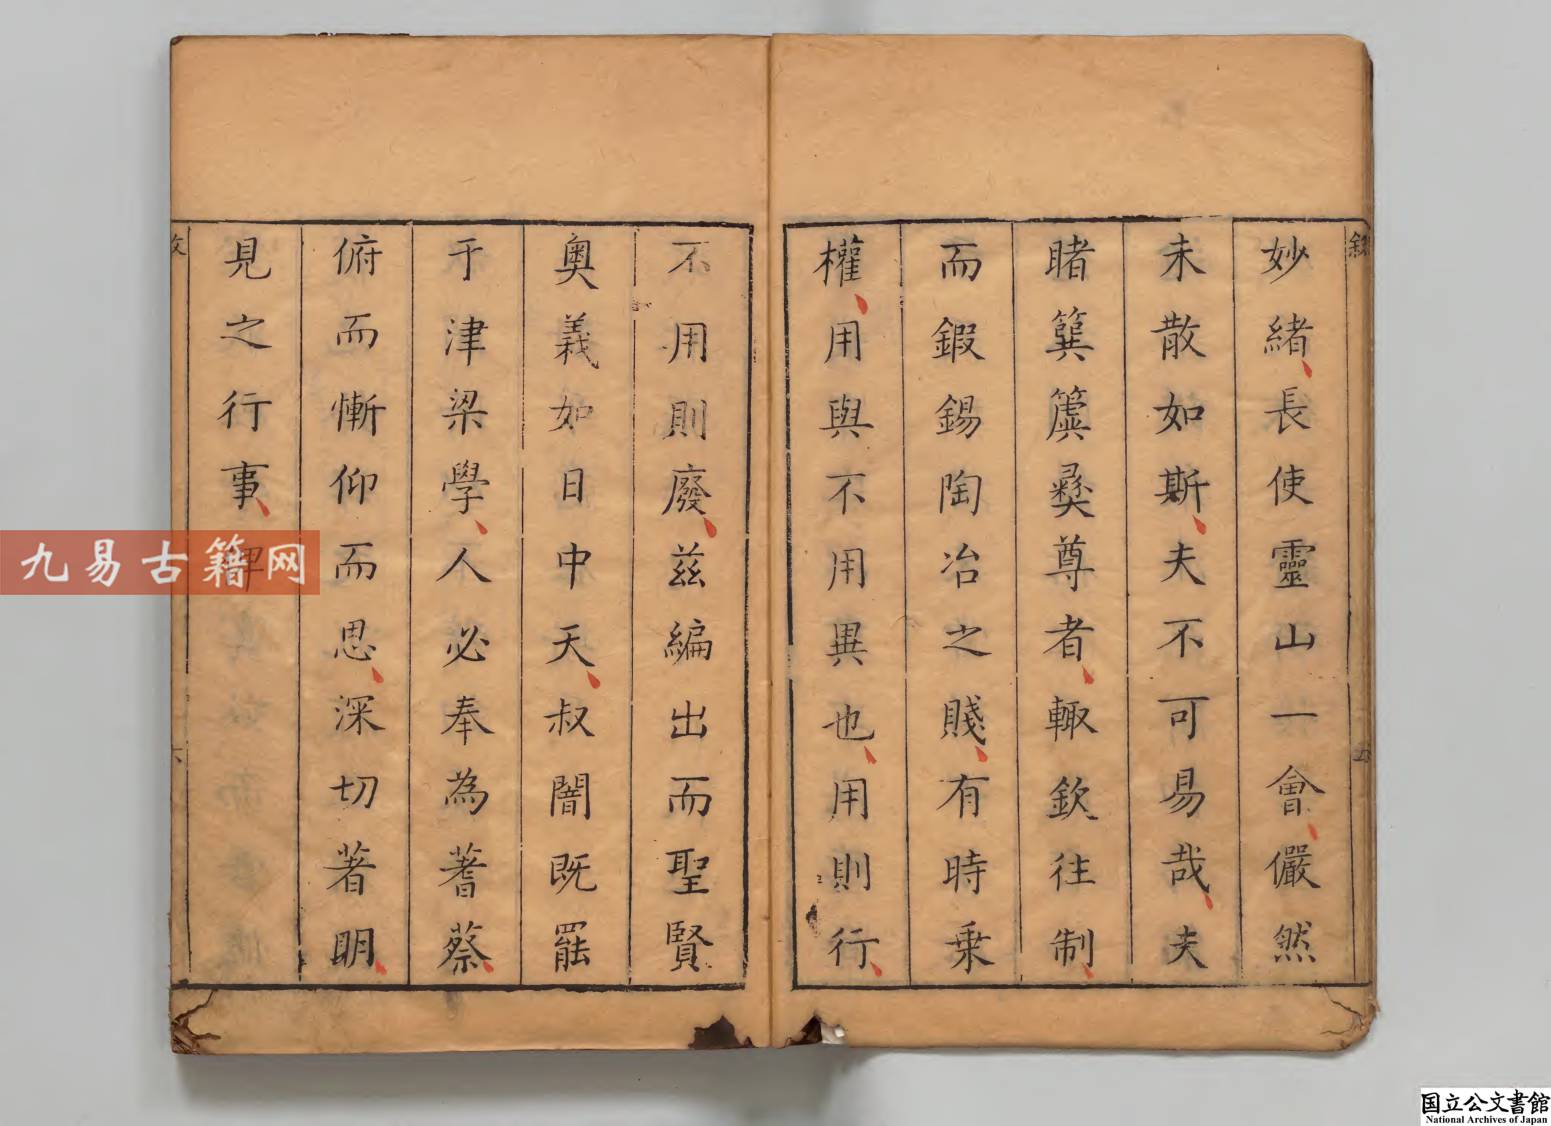 敘
妙緒長使靈山一會儼然
未散如斯夫不可易哉夫
睹簨簴彜尊者輙欽往制
而鍜錫陶冶之賤有時乗
權用與不用異也用則行
五
不用則廢茲編出而聖賢
奧義如日中天叔闇既罷
于津梁學人必奉為蓍蔡
俯而慚仰而思深切著明
見之行事
六
九易古籍网
国立公文書館
National Archives of Japan